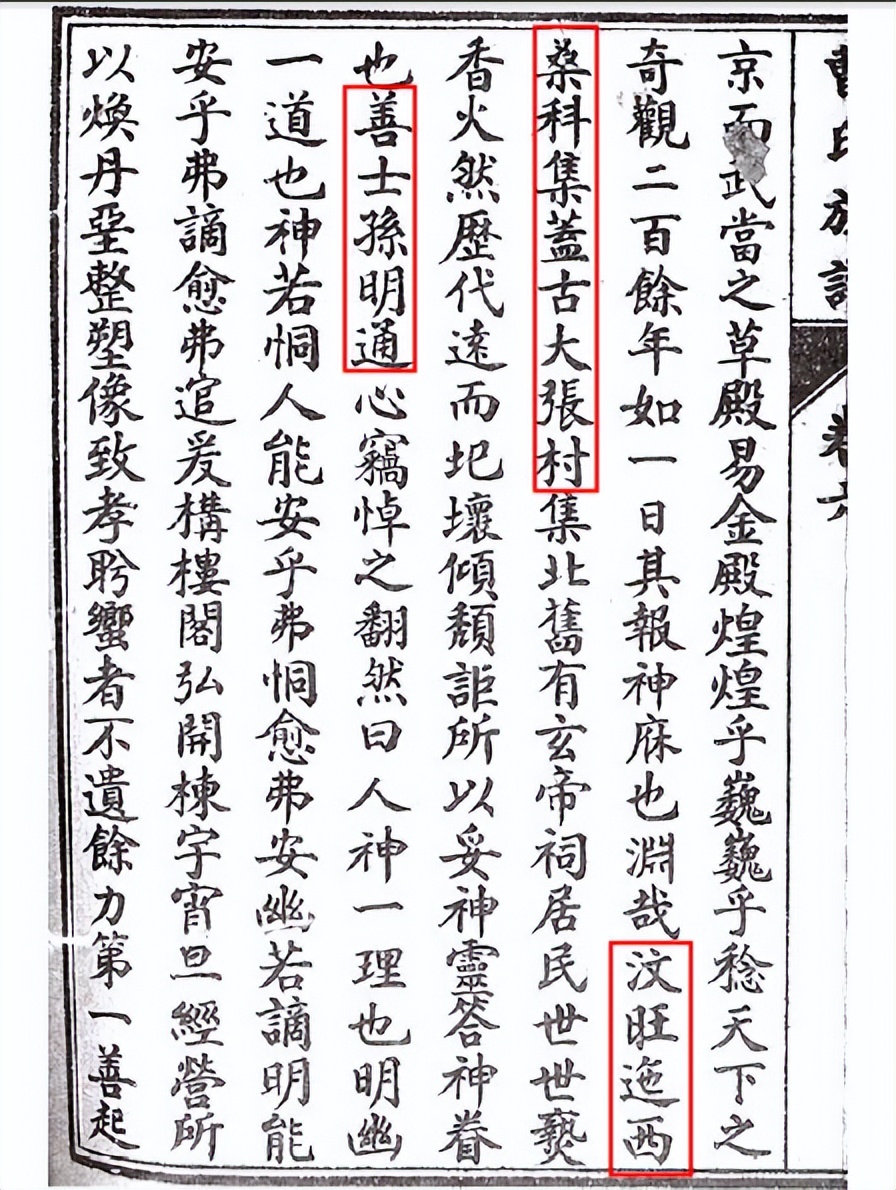 曹氏族譜 卷六
京而武當之草殿易金殿煌煌乎巍巍乎稔天下之
奇觀二百餘年如一日其報神庥也淵哉汶旺迤西
桑科集蓋古大張村集北舊有玄帝祠居民世世爇
香火然歷代遠而圯壞傾頹詎所以妥神靈答神眷
也善士孫明通心竊悼之翻然曰人神一理也明幽
一道也神若恫人能安乎弗恫愈弗安幽若謫明能
安乎弗謫愈弗逭爰構樓閣弘開棟宇宵旦經營所
以煥丹堊整塑像致孝肹蠁者不遺餘力第一善起